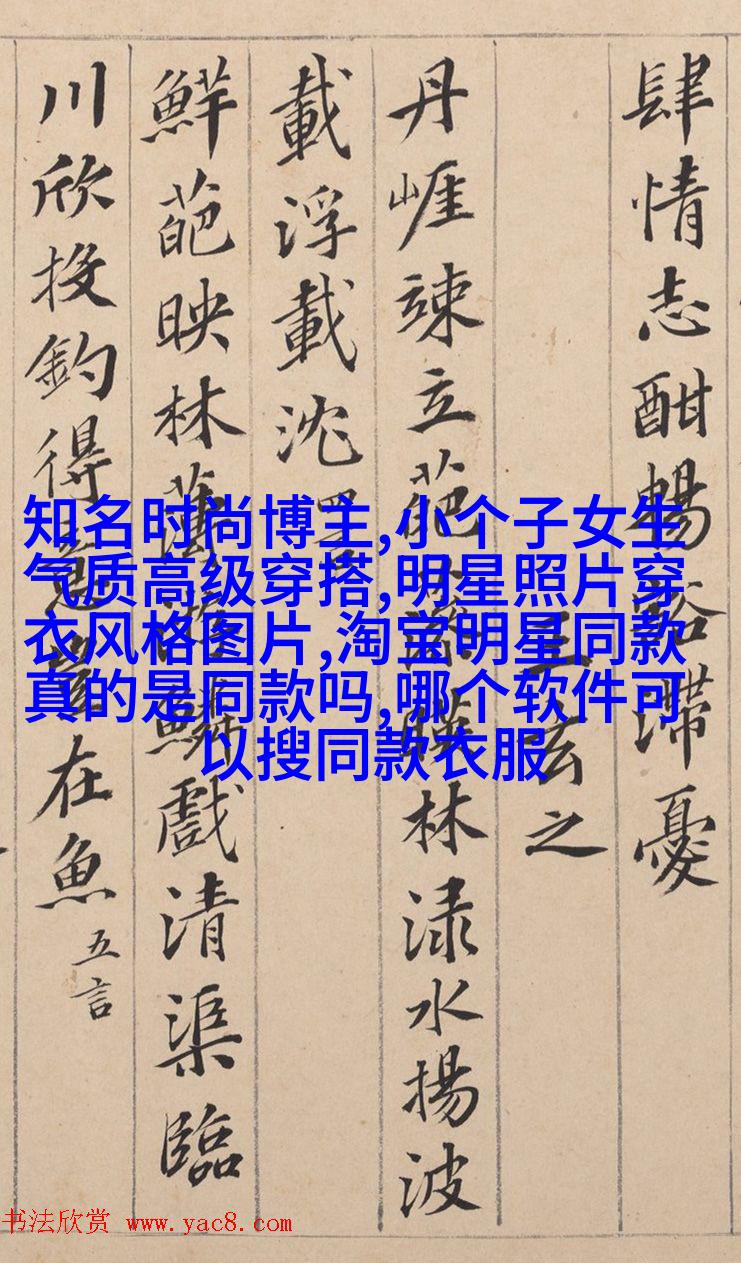 肆情志酣暢豁滯憂
王玄之
丹崖竦立葩藻暎林渌水揚波
載浮載沈
鮮葩映林薄游鱗戲清渠臨
川欣投釣得意豈在魚 五言
知名时尚博主,小个子女生
气质高级穿搭,明星照片穿
衣风格图片,淘宝明星同款
真的是同款吗,哪个软件可
以搜同款衣服
书法欣赏 www.yac8.com